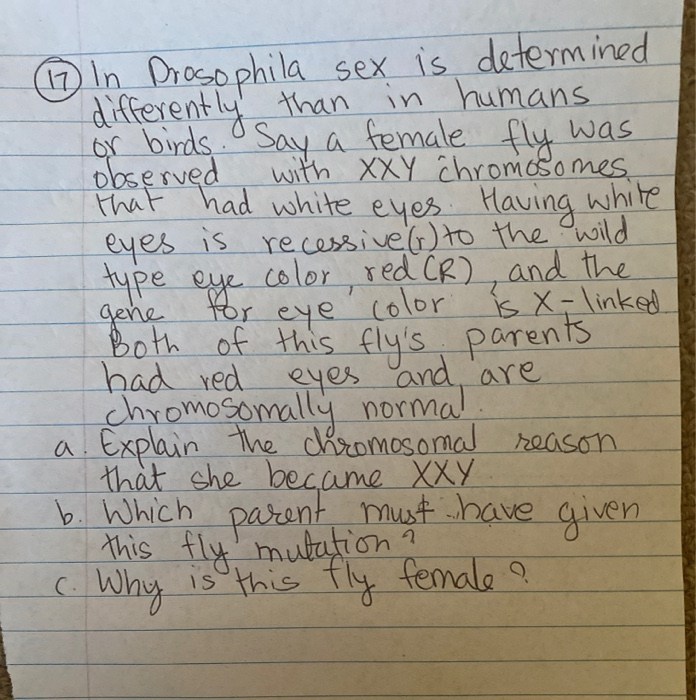 17 In Drosophila sex is determined
differently than in humans
or birds. Say a female fly was
observed with XXY chromosomes
that had white eyes. Having white
eyes is recessive(r) to the wild
type eye color, red (R), and the
gene for eye color is X-linked
Both of this fly's parents
had red eyes and are
chromosomally normal.
a. Explain the chromosomal reason
that she became XXY
b. Which parent must have given
this fly mutation?
c. Why is this fly female?